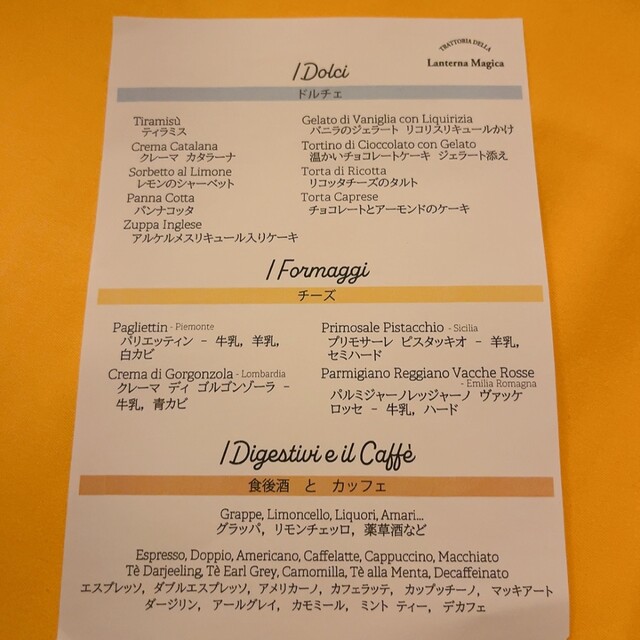 TRATTORIA DELLA
Lanterna Magica
I Dolci
ドルチェ
Tiramisù
ティラミス
Crema Catalana
クレーマ カタラーナ
Sorbetto al Limone
レモンのシャーベット
Panna Cotta
パンナコッタ
Zuppa Inglese
アルケルメスリキュール入りケーキ
Gelato di Vaniglia con Liquirizia
バニラのジェラート リコリスリキュールかけ
Tortino di Cioccolato con Gelato
温かいチョコレートケーキ ジェラート添え
Torta di Ricotta
リコッタチーズのタルト
Torta Caprese
チョコレートとアーモンドのケーキ
I Formaggi
チーズ
Pagliettin - Piemonte
パリエッティン - 牛乳, 羊乳,
白カビ
Crema di Gorgonzola - Lombardia
クレーマ ディ ゴルゴンゾーラ -
牛乳, 青カビ
Primosale Pistacchio - Sicilia
プリモサーレ ピスタッキオ - 羊乳,
セミハード
Parmigiano Reggiano Vacche Rosse
- Emilia Romagna
パルミジャーノレッジャーノ ヴァッケ
ロッセ - 牛乳, ハード
I Digestivi e il Caffè
食後酒 と カッフェ
Grappe, Limoncello, Liquori, Amari...
グラッパ, リモンチェッロ, 薬草酒など
Espresso, Doppio, Americano, Caffelatte, Cappuccino, Macchiato
Tè Darjeeling, Tè Earl Grey, Camomilla, Tè alla Menta, Decaffeinato
エスプレッソ, ダブルエスプレッソ, アメリカーノ, カフェラッテ, カップッチーノ, マッキアート
ダージリン, アールグレイ, カモミール, ミント ティー, デカフェ